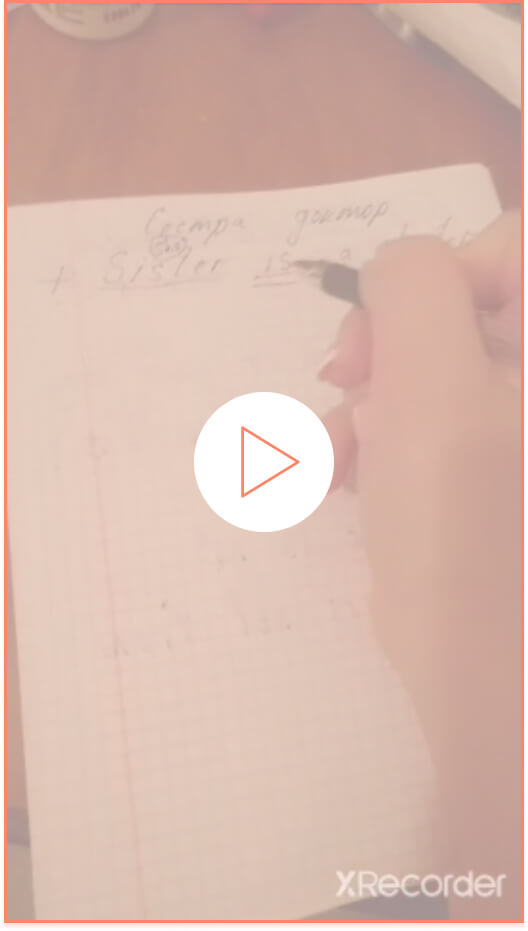 Сестра доктор
(she)
+ Sister is a
XRecorder